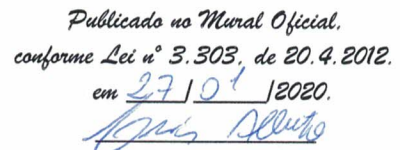 Publicado no Mural Oficial,
conforme Lei nº 3.303, de 20.4.2012.
em 27/01/2020.